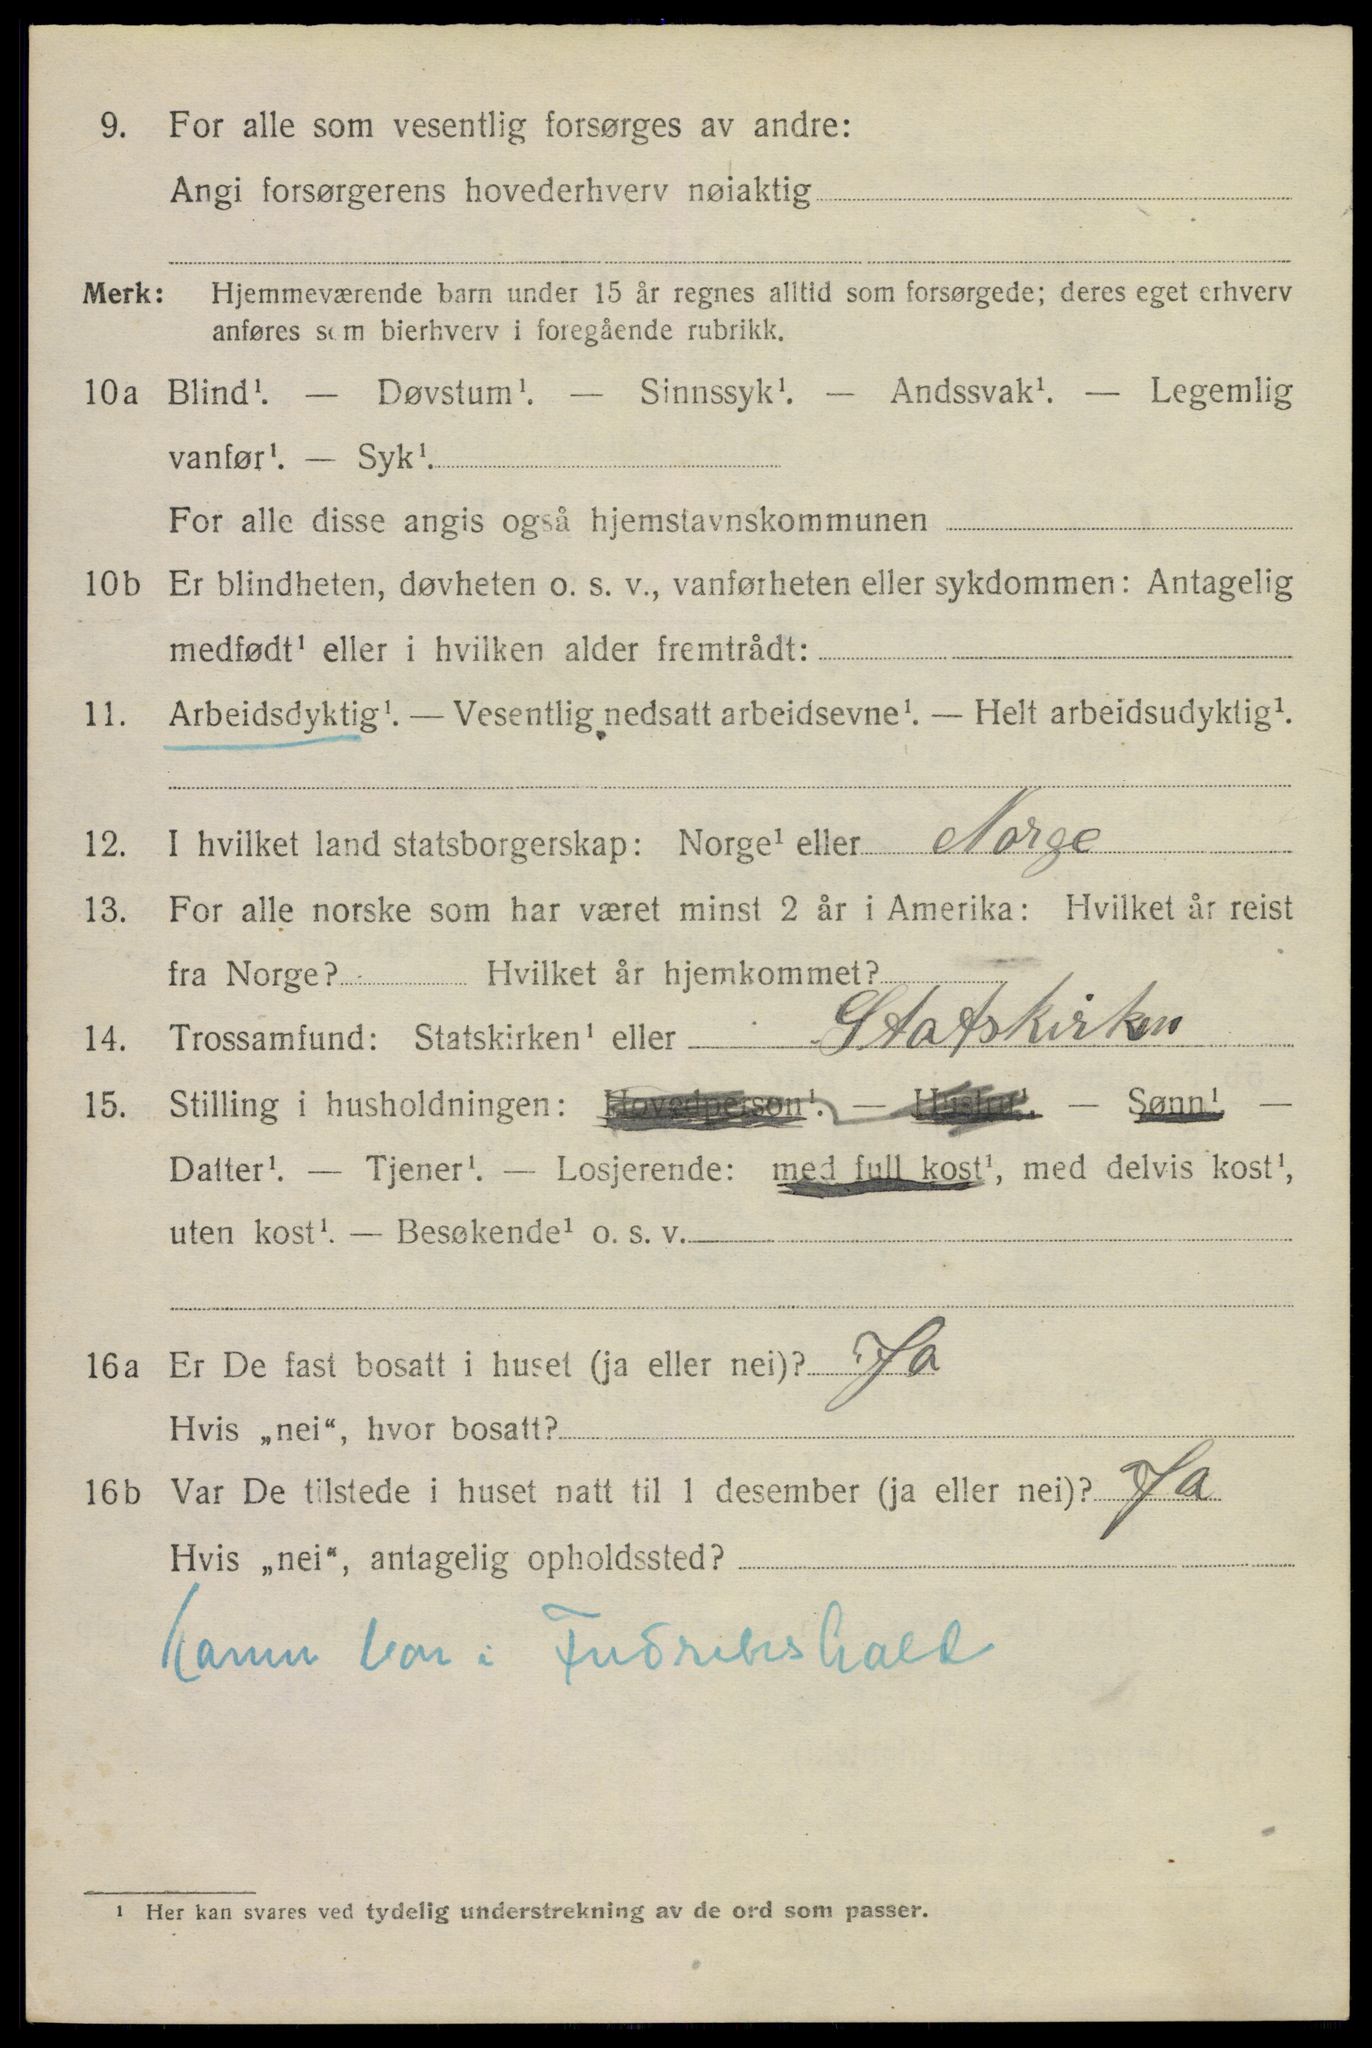 9. For alle som vesentlig forsørges av andre:
Angi forsørgerens hovederhverv nøiaktig
Merk: Hjemmeværende barn under 15 år regnes alltid som forsørgede; deres eget erhverv
anføres som bierhverv i foregående rubrikk.
10a Blind¹. — Døvstum¹. — Sinnssyk¹. — Andssvak¹. — Legemlig
vanfør¹. — Syk¹.
For alle disse angis også hjemstavnskommunen
10b Er blindheten, døvheten o. s. v., vanførheten eller sykdommen: Antagelig
medfødt¹ eller i hvilken alder fremtrådt:
11. Arbeidsdyktig¹. — Vesentlig nedsatt arbeidsevne¹. — Helt arbeidsudyktig¹.
12. I hvilket land statsborgerskap: Norge¹ eller Norge
13. For alle norske som har været minst 2 år i Amerika: Hvilket år reist
fra Norge? Hvilket år hjemkommet?
14. Trossamfund: Statskirken¹ eller Statskirken
15. Stilling i husholdningen: Hovedperson¹. — Hustru¹. — Sønn¹. —
Datter¹. — Tjener¹. — Losjerende: med full kost¹, med delvis kost¹,
uten kost¹. — Besøkende¹ o. s. v.
16a Er De fast bosatt i huset (ja eller nei)? Ja
Hvis „nei“, hvor bosatt?
16b Var De tilstede i huset natt til 1 desember (ja eller nei)? Ja
Hvis „nei“, antagelig opholdssted?
i Fredrikshald
¹ Her kan svares ved tydelig understrekning av de ord som passer.